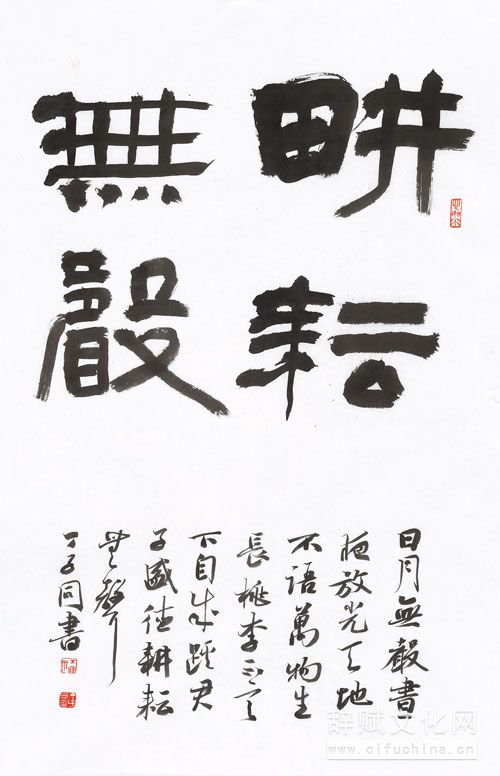 畊耘
無聲
日月無聲晝
夜放光天地
不語萬物生
長桃李不言
下自成蹊君
子盛德耕耘
無聲
同書
辞赋文化网
www.cifuchina.cn